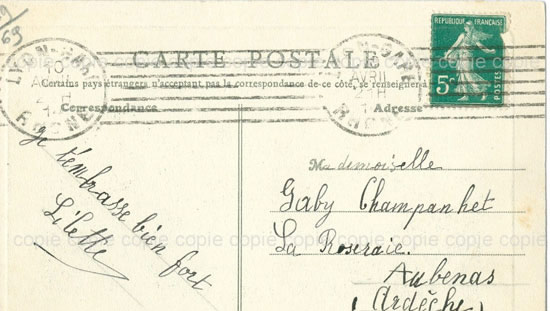 69
RÉPUBLIQUE FRANÇAISE
5c
POSTES
LYON-GARE
RHONE
10
AVRIL
LYON-GARE
AVRIL
RHONE
CARTE POSTALE
Certains pays étrangers n'acceptent pas la correspondance de ce côté, se renseigner à la
Correspondance
Adresse
Je t'embrasse bien fort
Lilette
Mademoiselle
Gaby Champanhet
La Roseraie.
Aubenas
(Ardèche)
copie copie copie copie copie copie copie copie
copie copie copie copie copie copie copie copie